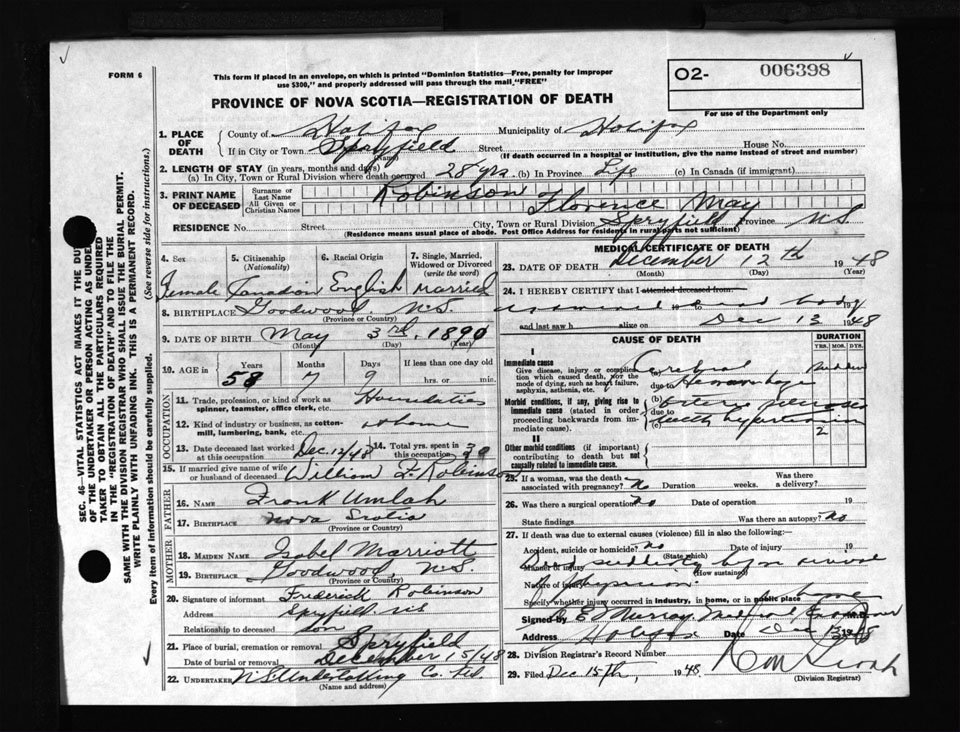 FORM 6
This form if placed in an envelope, on which is printed "Dominion Statistics—Free, penalty for improper
use $300," and properly addressed will pass through the mail, "FREE"
O2- 006398
For use of the Department only
PROVINCE OF NOVA SCOTIA—REGISTRATION OF DEATH
SEC. 46—VITAL STATISTICS ACT MAKES IT THE
OF THE UNDERTAKER OR PERSON ACTING AS
TAKER TO OBTAIN ALL THE PARTICULARS REQUIRED
IN THE "REGISTRATION OF DEATH" AND TO FILE THE
SAME WITH THE DIVISION REGISTRAR WHO SHALL ISSUE THE BURIAL PERMIT.
WRITE PLAINLY WITH UNFADING INK. THIS IS A PERMANENT RECORD.
Every item of information should be carefully supplied. (See reverse side for instructions.)
1. PLACE OF DEATH
County of Halifax Municipality of Halifax
If in City or Town Spryfield Street House No.
(Name) (If death occurred in a hospital or institution, give the name instead of street and number)
2. LENGTH OF STAY (in years, months and days)
(a) In City, Town or Rural Division where death occurred 28 yrs. (b) In Province Life (c) In Canada (if immigrant)
3. PRINT NAME OF DECEASED
Surname or Last Name Robinson
All Given or Christian Names Florence May
RESIDENCE No. Street City, Town or Rural Division Spryfield Province N.S.
(Residence means usual place of abode. Post Office Address for residents in rural parts not sufficient)
4. Sex 5. Citizenship (Nationality) 6. Racial Origin 7. Single, Married, Widowed or Divorced (write the word)
Female Canadian English Married
8. BIRTHPLACE Goodwood N.S.
(Province or Country)
9. DATE OF BIRTH May 3rd, 1890
(Month) (Day) (Year)
10. AGE in Years Months Days If less than one day old
58 7 9 hrs. or min.
OCCUPATION
11. Trade, profession or kind of work as spinner, teamster, office clerk, etc.
12. Kind of industry or business, as cotton-mill, lumbering, bank, etc. at home
13. Date deceased last worked at this occupation Dec. 12/48 14. Total yrs. spent in this occupation 30
15. If married give name of wife or husband of deceased William F. Robinson
FATHER
16. NAME Frank Umlah
17. BIRTHPLACE Nova Scotia
(Province or Country)
MOTHER
18. MAIDEN NAME Isabel Marriott
19. BIRTHPLACE Goodwood, N.S.
(Province or Country)
20. Signature of informant Frederick Robinson
Address Spryfield NS
Relationship to deceased son
21. Place of burial, cremation or removal Spryfield
Date of burial or removal December 15/48
22. UNDERTAKER N.S. Undertaking Co. Ltd.
(Name and address)
MEDICAL CERTIFICATE OF DEATH
23. DATE OF DEATH December 12th 1948
(Month) (Day) (Year)
24. I HEREBY CERTIFY that I attended deceased from:
examined dead body 19
and last saw h alive on Dec 13 1948
CAUSE OF DEATH
DURATION
YRS. MOS. DYS.
I
Immediate cause
Give disease, injury or complication which caused death, not the mode of dying, such as heart failure, asphyxia, asthenia, etc.
(a) Cerebral
due to Hemorrhage
Morbid conditions, if any, giving rise to immediate cause (stated in order proceeding backwards from immediate cause).
(b)
due to
with hypertension
2
II
Other morbid conditions (if important) contributing to death but not causally related to immediate cause.
25. If a woman, was the death associated with pregnancy? No Duration weeks. Was there a delivery?
26. Was there a surgical operation? No Date of operation 19
State findings Was there an autopsy? No
27. If death was due to external causes (violence) fill in also the following:
Accident, suicide or homicide? No Date of injury 19
(State which)
Manner of injury
(How sustained)
Nature of injury
Specify whether injury occurred in industry, in home, or in public place home
Signed by E Murray Medical Examiner
Address Halifax Date 1948
28. Division Registrar's Record Number
29. Filed Dec 15th, 1948
(Division Registrar)